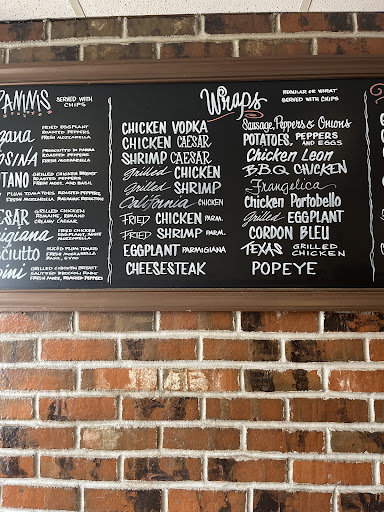 PANINIS SERVED WITH CHIPS
FRIED EGGPLANT
ROASTED PEPPERS
FRESH MOZZARELLA
PROSCIUTTO DI PARMA
ROASTED PEPPERS
FRESH MOZZARELLA
GRILLED CHICKEN BREAST
ROASTED PEPPERS
FRESH MOZZ, AND BASIL
PLUM TOMATOES, ROASTED PEPPERS
FRESH MOZZ, BALSAMIC REDUCTION
GRILLED CHICKEN
ROMAINE, ROMANO
CREAMY CAESAR
FRIED CHICKEN
MOZZARELLA
SLICED PLUM TOMATO
FRESH MOZZARELLA
BASIL, EVOO
GRILLED CHICKEN BREAST
SAUTEED BROCCOLI RABE
FRESH MOZZ, ROASTED PEPPERS
Wraps
REGULAR OR WHEAT
SERVED WITH CHIPS
CHICKEN VODKA
CHICKEN CAESAR
SHRIMP CAESAR
Grilled CHICKEN
Grilled SHRIMP
California CHICKEN
FRIED CHICKEN PARM.
FRIED SHRIMP PARM.
EGGPLANT PARMIGIANA
CHEESESTEAK
Sausage, Peppers & Onions
POTATOES, PEPPERS AND EGGS
Chicken Leon
B.B.Q CHICKEN
Frangelica
Chicken Portobello
Grilled EGGPLANT
CORDON BLEU
TEXAS GRILLED CHICKEN
POPEYE